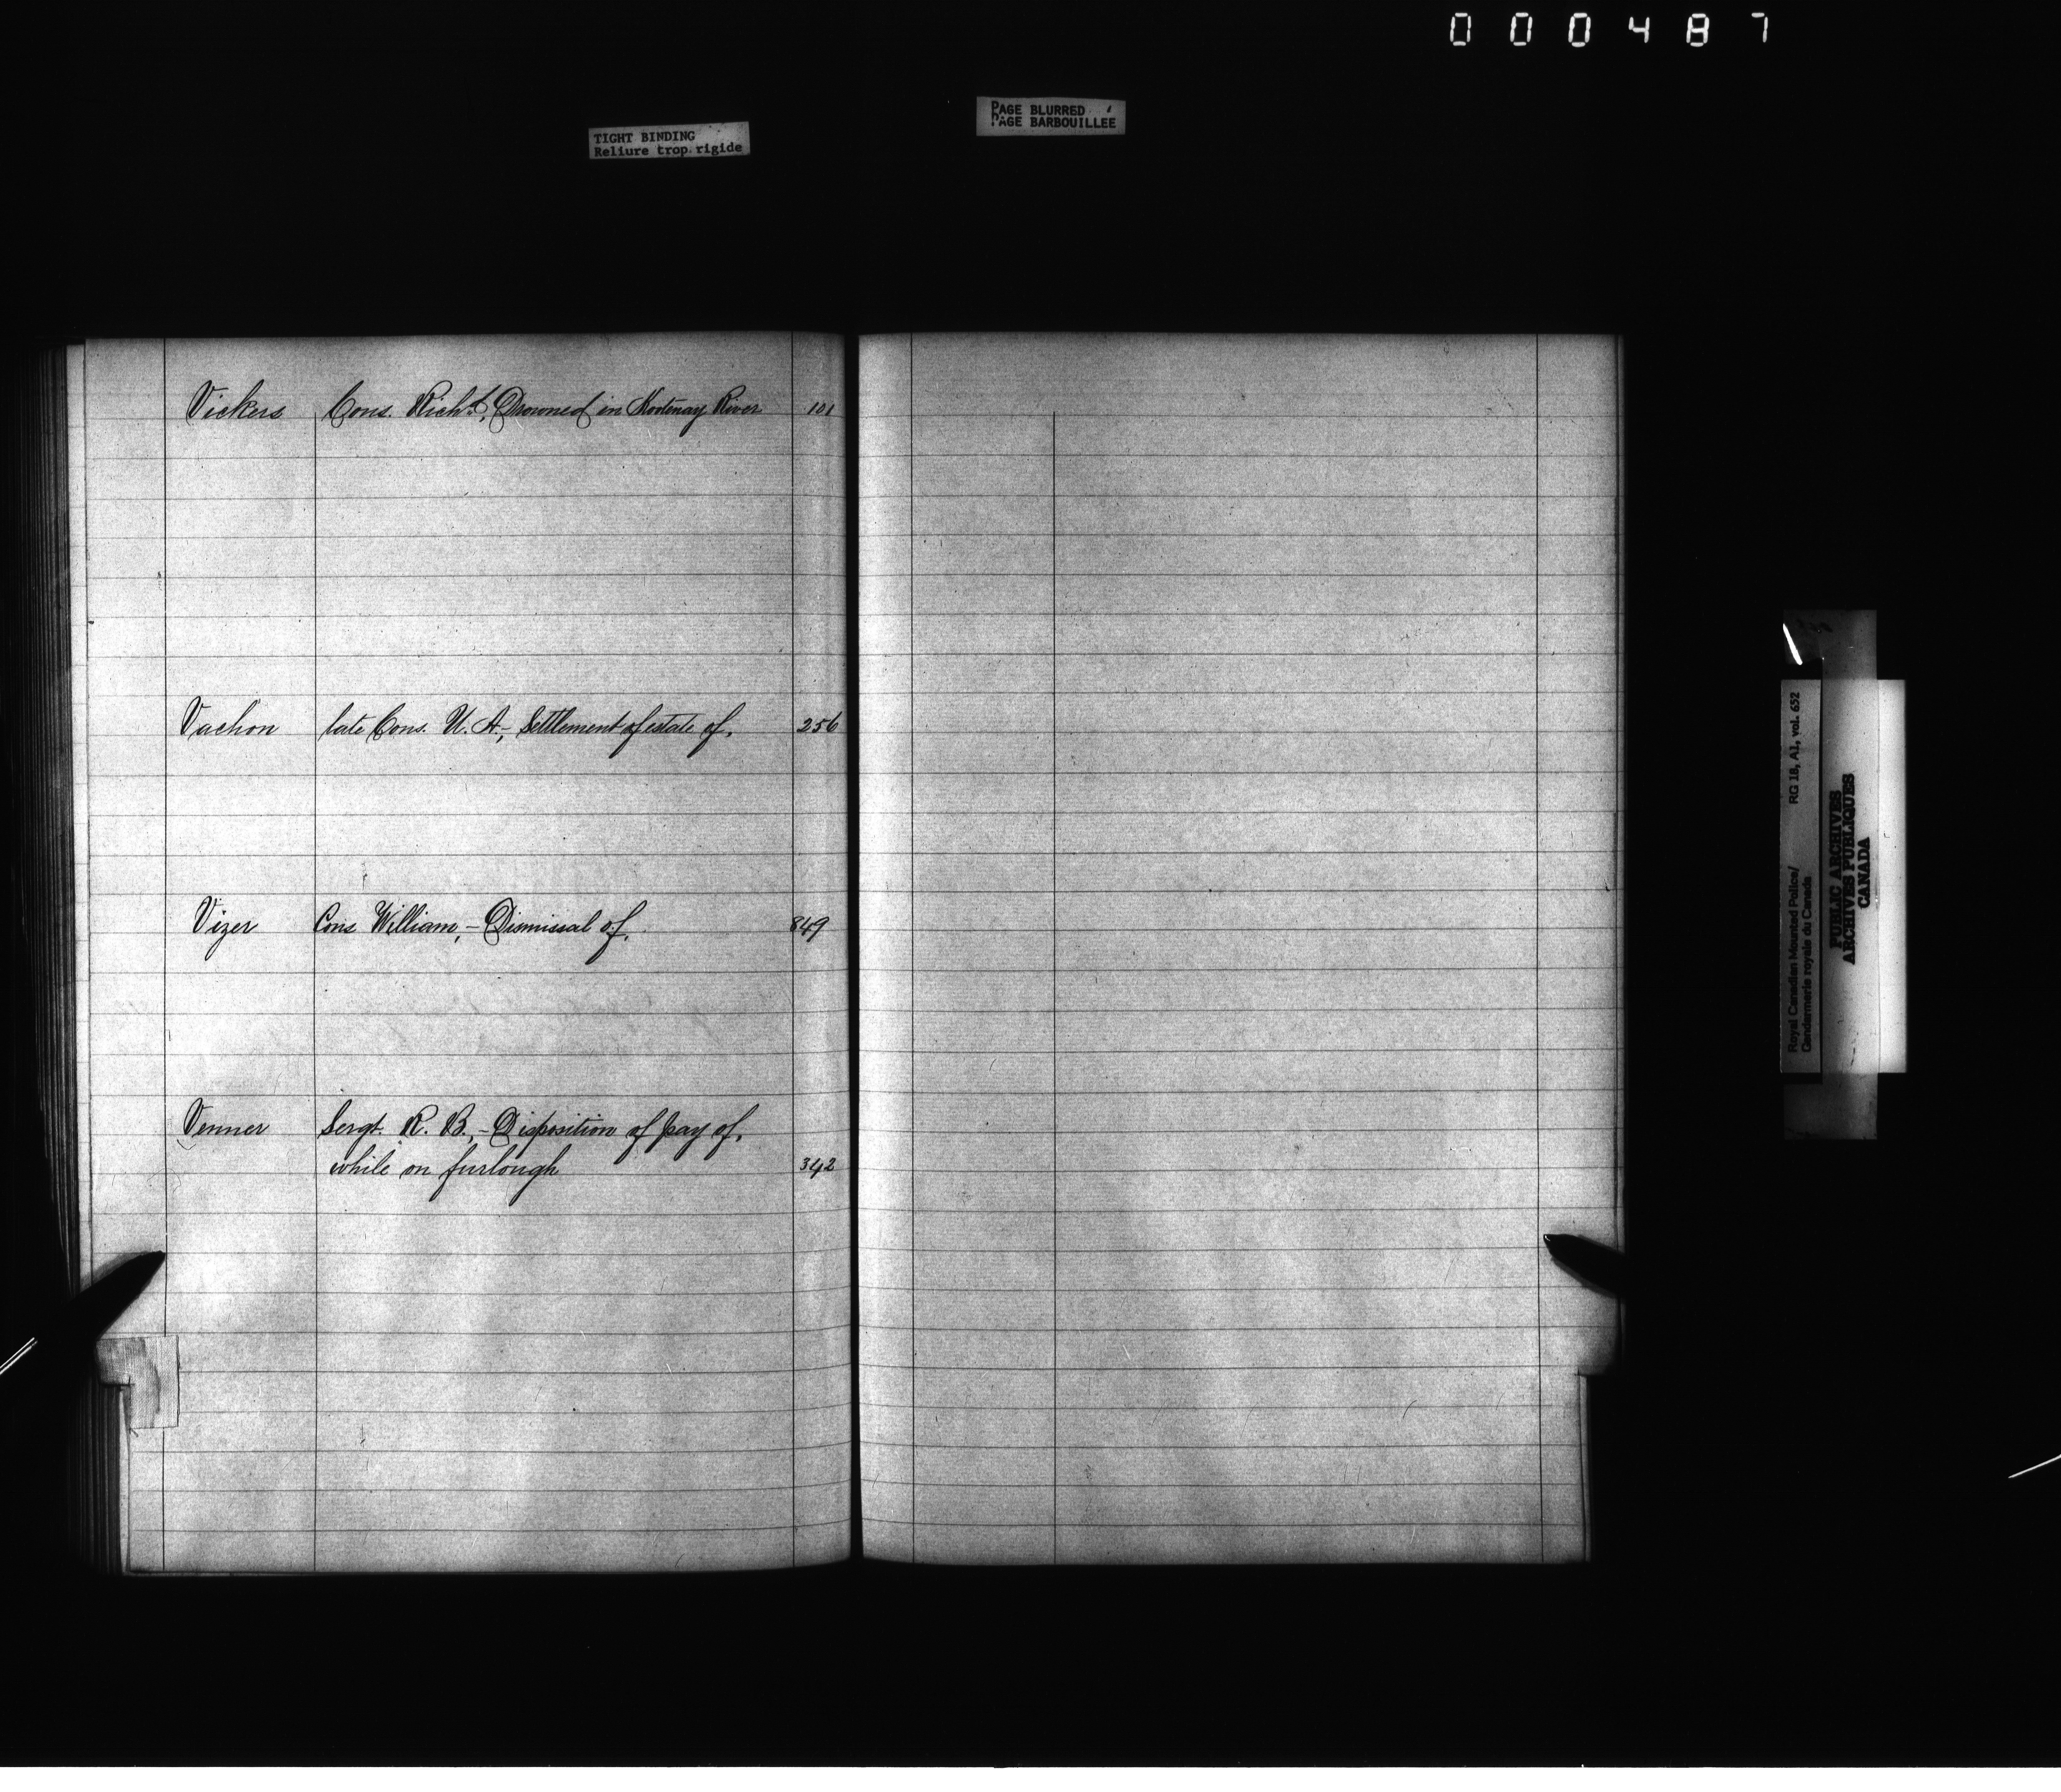 000487
PAGE BLURRED
PAGE BARBOUILLEE
TIGHT BINDING
Reliure trop rigide
Vickers Cons. Richd., Drowned in Kootenay River 101
Vachon late Cons. U. A., Settlement of estate of. 256
Vizer Cons William, - Dismissal of. 849
Venner Sergt. R. B., - Disposition of pay of,
while on furlough 342
Royal Canadian Mounted Police/ RG 18, A1, vol. 652
Gendarmerie royale du Canada
PUBLIC ARCHIVES
ARCHIVES PUBLIQUES
CANADA